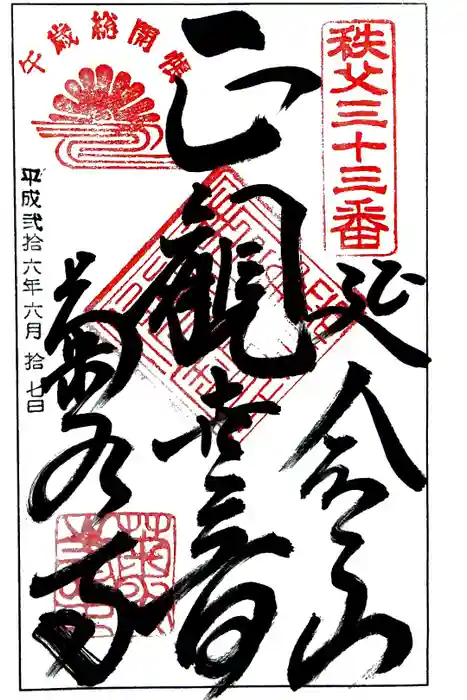 秩父三十三番
延命山
正観世音
午歳総開帳
菊水寺
平成弐拾六年六月拾七日